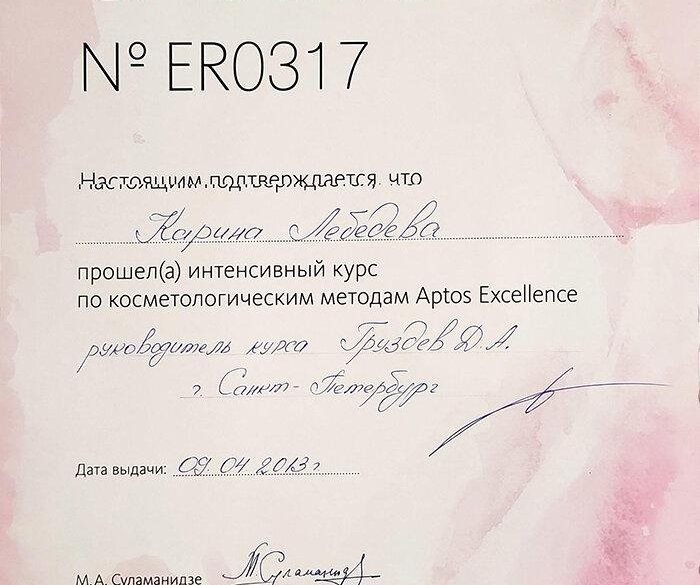 Nº ER0317
Настоящим подтверждается, что
Карина Лебедева
прошел(а) интенсивный курс
по косметологическим методам Aptos Excellence
руководитель курса Груздев Д.А.
г. Санкт-Петербург
Дата выдачи: 09.04 2013 г
М.А. Суламанидзе М Суламанидзе